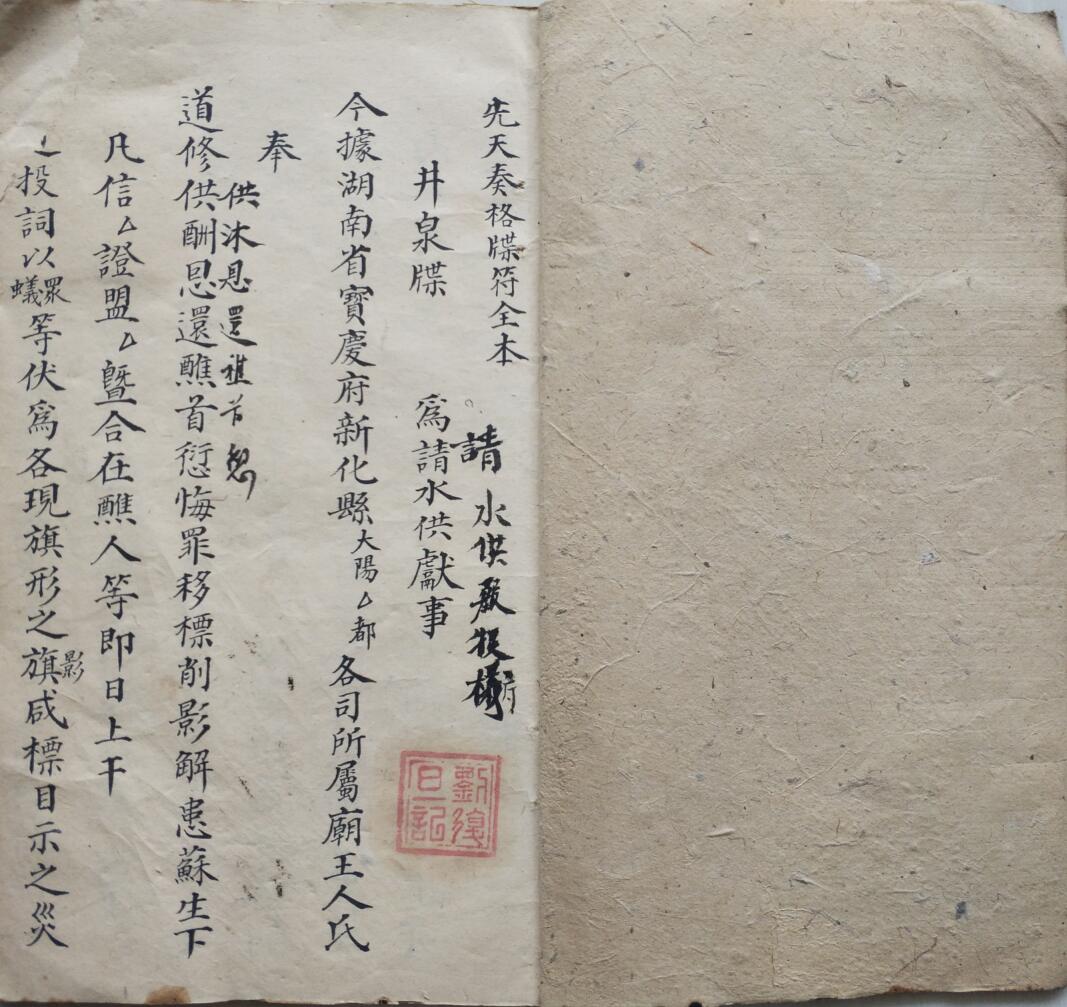 先天奏格牒符全本
請水供
井泉牒 爲請水供獻事
劉復
巳記
今據湖南省寶慶府新化縣大陽厶都各司所屬廟王人氏
奉
供沐恩還禳首愆
道修供酬恩還醮首愆悔罪移標削影解患蘇生下
凡信厶證盟厶暨合在醮人等即日上干
投詞以
眾
蟻
等伏爲各現旗形之旗咸標目示之災
影